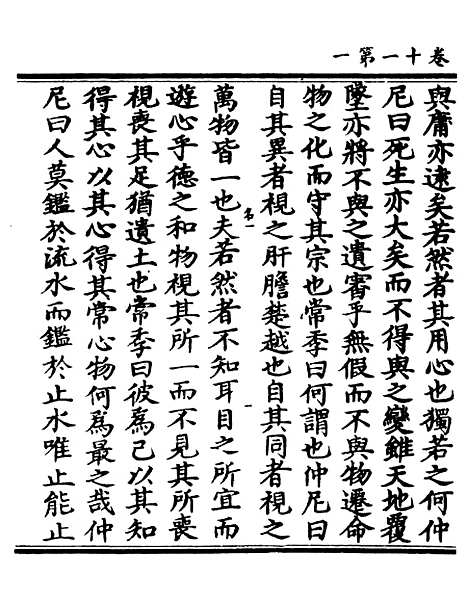 卷十一第一
與庸亦遠矣若然者其用心也獨若之何仲
尼曰死生亦大矣而不得與之變雖天地覆
墜亦將不與之遺審乎無假而不與物遷命
物之化而守其宗也常季曰何謂也仲尼曰
自其異者視之肝膽楚越也自其同者視之
萬物皆一也夫若然者不知耳目之所宜而
遊心乎德之和物視其所一而不見其所喪
視喪其足猶遺土也常季曰彼爲己以其知
得其心以其心得其常心物何爲最之哉仲
尼曰人莫鑑於流水而鑑於止水唯止能止